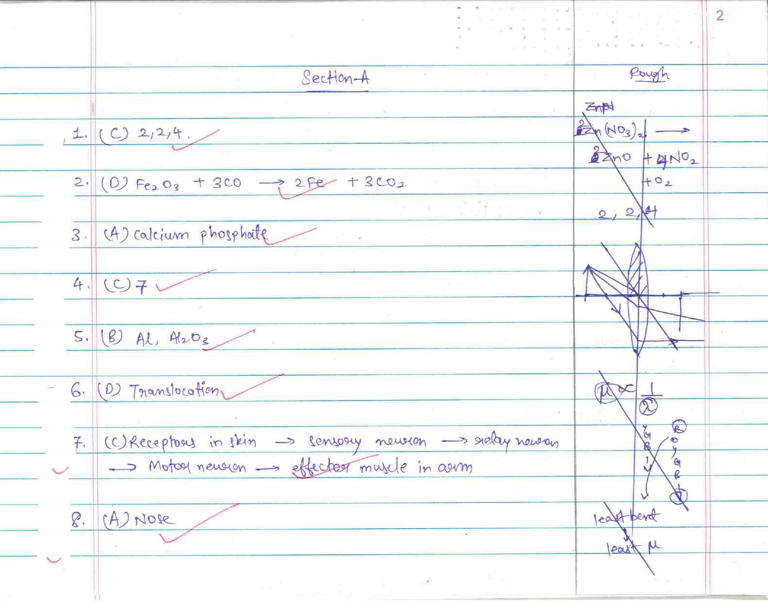 2
Section-A
Rough
1. (C) 2,2,4.
2. (D) Fe₂O₃ + 3CO → 2Fe + 3CO₂
3. (A) calcium phosphate
4. (C) 7
5. (B) Al, Al₂O₃
6. (D) Translocation
7. (C) Receptors in skin → sensory neuron → relay neuron
→ Motor neuron → effector muscle in arm
8. (A) Nose
2Zn(NO₃)₂ →
2ZnO + 4NO₂
+ O₂
2, 2, 4
μ ∝ 1/λ
R
O
Y
G
B
I
V
least bent
least μ